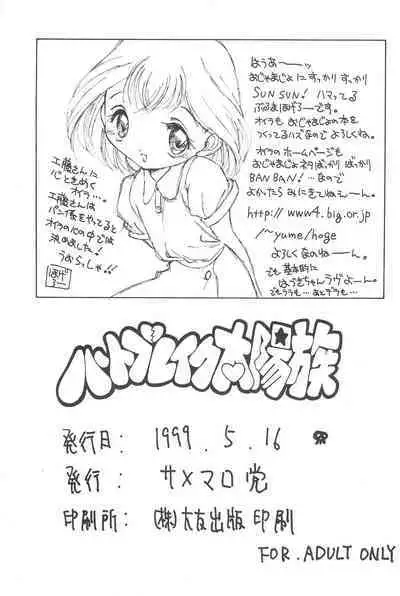 はうあ〜ーっ
おじゃまじょにすっかりすっかり
SUN SUN! ハマってる
ぶるまほげろーです。
オイラも おじゃまじょの本を
つくってるハズなので よろしくね。
オイラのホームページも
おじゃまじょネタばっかり ばっかり
BAN BAN! …なので
よかったらみにきてねえーん。
http://www4.big.or.jp
/~yume/hoge
よろしくなのねーん。
でも 基本的に
はづきちゃんラヴよーん。
でもララも… あとデラも…
工藤さんに
心ときめく
オイラ…。
工藤さんは
パンイ
オイラの心の中では
決めました!
うおらっしゃ!!
ほげろー
ハートブレイク太陽族
発行日: 1999.5.16
発行: サメマロ党
印刷所: (株)太友出版印刷
FOR.ADULT ONLY